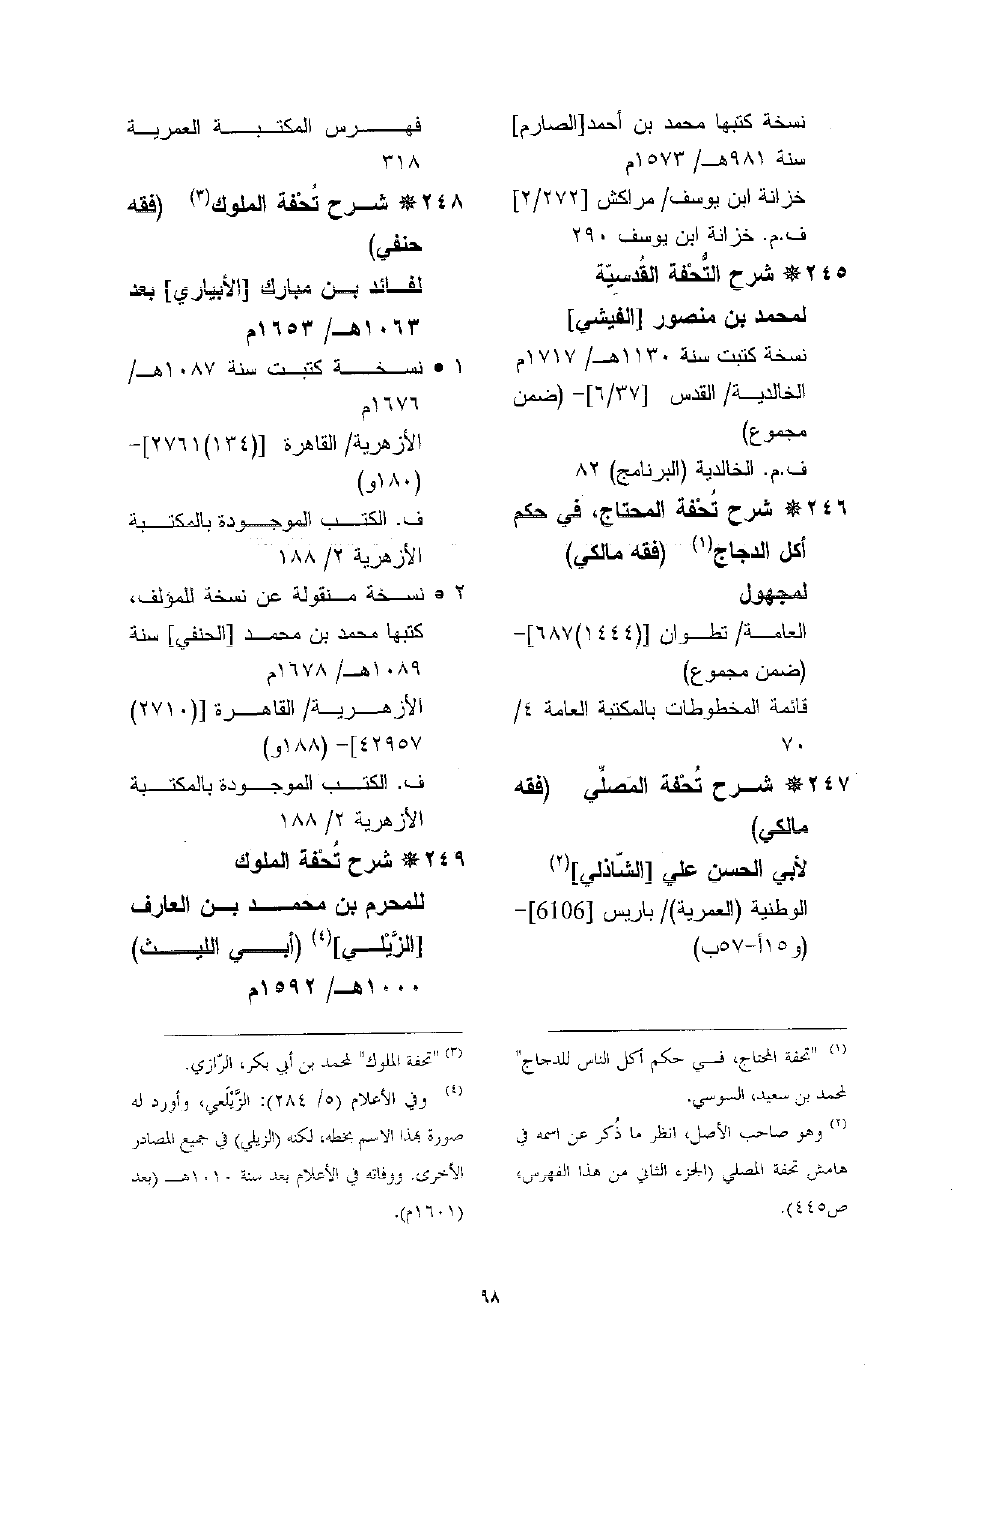 نسخة كتبها محمد بن أحمد[الصارم]
سنة ٩٨١هـ/ ١٥٧٣م
خزانة ابن يوسف/ مراكش [٢/٢٧٢]
ف.م. خزانة ابن يوسف ٢٩٠
٢٤٥* شرح التُّحْفة القُدسيّة
لمحمد بن منصور [الفيشي]
نسخة كتبت سنة ١١٣٠هـ/ ١٧١٧م
الخالدية/ القدس [٦/٣٧]- (ضمن
مجموع)
ف.م. الخالدية (البرنامج) ٨٢
٢٤٦* شرح تُحْفة المحتاج، في حكم
أكل الدجاج(١) (فقه مالكي)
لمجهول
العامة/ تطوان [(١٤٤٤)٦٨٧]-
(ضمن مجموع)
قائمة المخطوطات بالمكتبة العامة ٤/
٧٠
٢٤٧* شرح تُحْفة المَصلِّي (فقه
مالكي)
لأبي الحسن علي [الشّاذلي](٢)
الوطنية (العمرية)/ باريس [6106]-
(و١٥أ-٥٧ب)
(١) "تحفة المحتاج، في حكم أكل الناس للدجاج"
لمحمد بن سعيد، السوسي.
(٢) وهو صاحب الأصل، انظر ما ذُكر عن اسمه في
هامش تحفة المصلي (الجزء الثاني من هذا الفهرس،
ص٤٤٥).
فهرس المكتبة العمرية
٣١٨
٢٤٨* شرح تُحْفة الملوك(٣) (فقه
حنفي)
لفائد بن مبارك [الأبياري] بعد
١٠٦٣هـ/ ١٦٥٣م
١ • نسخة كتبت سنة ١٠٨٧هـ/
١٦٧٦م
الأزهرية/ القاهرة [(١٣٤)٢٧٦١]-
(١٨٠و)
ف. الكتب الموجودة بالمكتبة
الأزهرية ٢/ ١٨٨
٢ • نسخة منقولة عن نسخة للمؤلف،
كتبها محمد بن محمد [الحنفي] سنة
١٠٨٩هـ/ ١٦٧٨م
الأزهرية/ القاهرة [(٢٧١٠)
٤٢٩٥٧]- (١٨٨و)
ف. الكتب الموجودة بالمكتبة
الأزهرية ٢/ ١٨٨
٢٤٩* شرح تُحْفة الملوك
للمحرم بن محمد بن العارف
[الزَّيْلي](٤) (أبي الليث)
١٠٠٠هـ/ ١٥٩٢م
(٣) "تحفة الملوك" لمحمد بن أبي بكر، الرّازي.
(٤) وفي الأعلام (٥/ ٢٨٤): الزَّيْلَعي، وأورد له
صورة بهذا الاسم بخطه، لكنه (الزيلي) في جميع المصادر
الأخرى. ووفاته في الأعلام بعد سنة ١٠١٠هـ (بعد
١٦٠١م).
٩٨